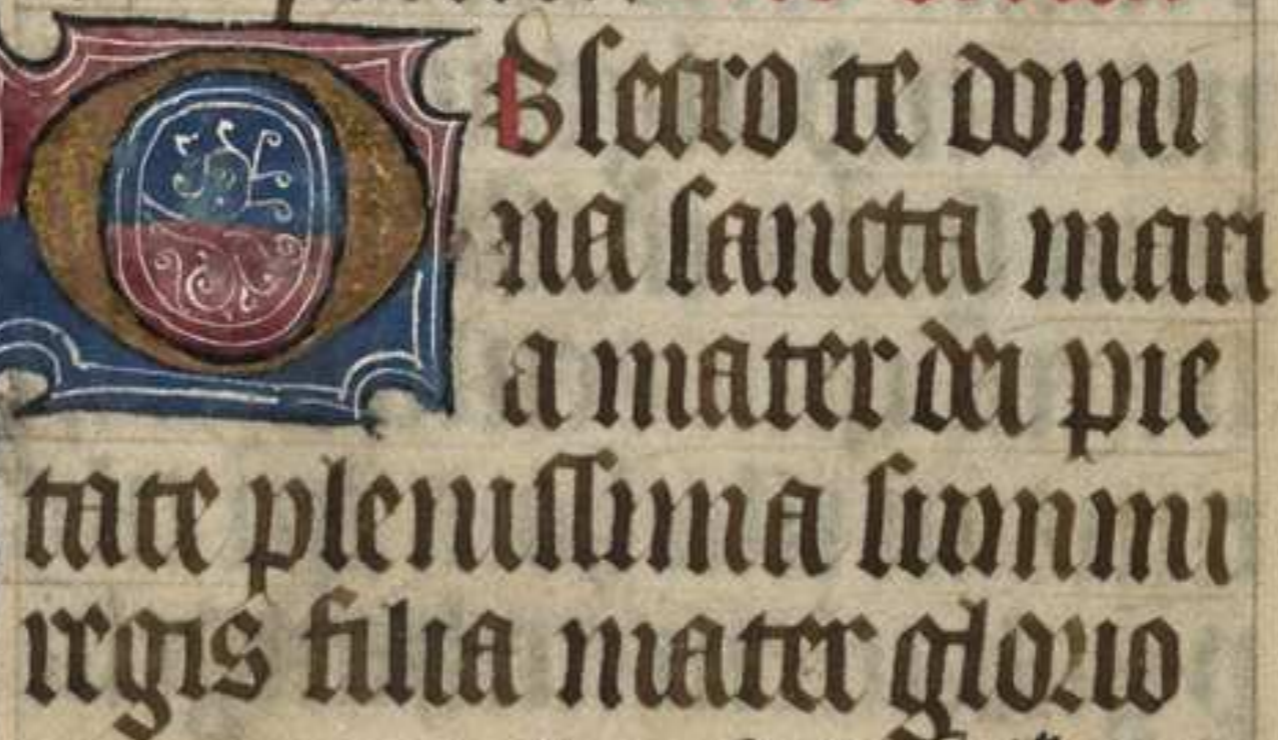 OBsecro te domi
na sancta mari
a mater dei pie
tate plenissima summi
regis filia mater glorio